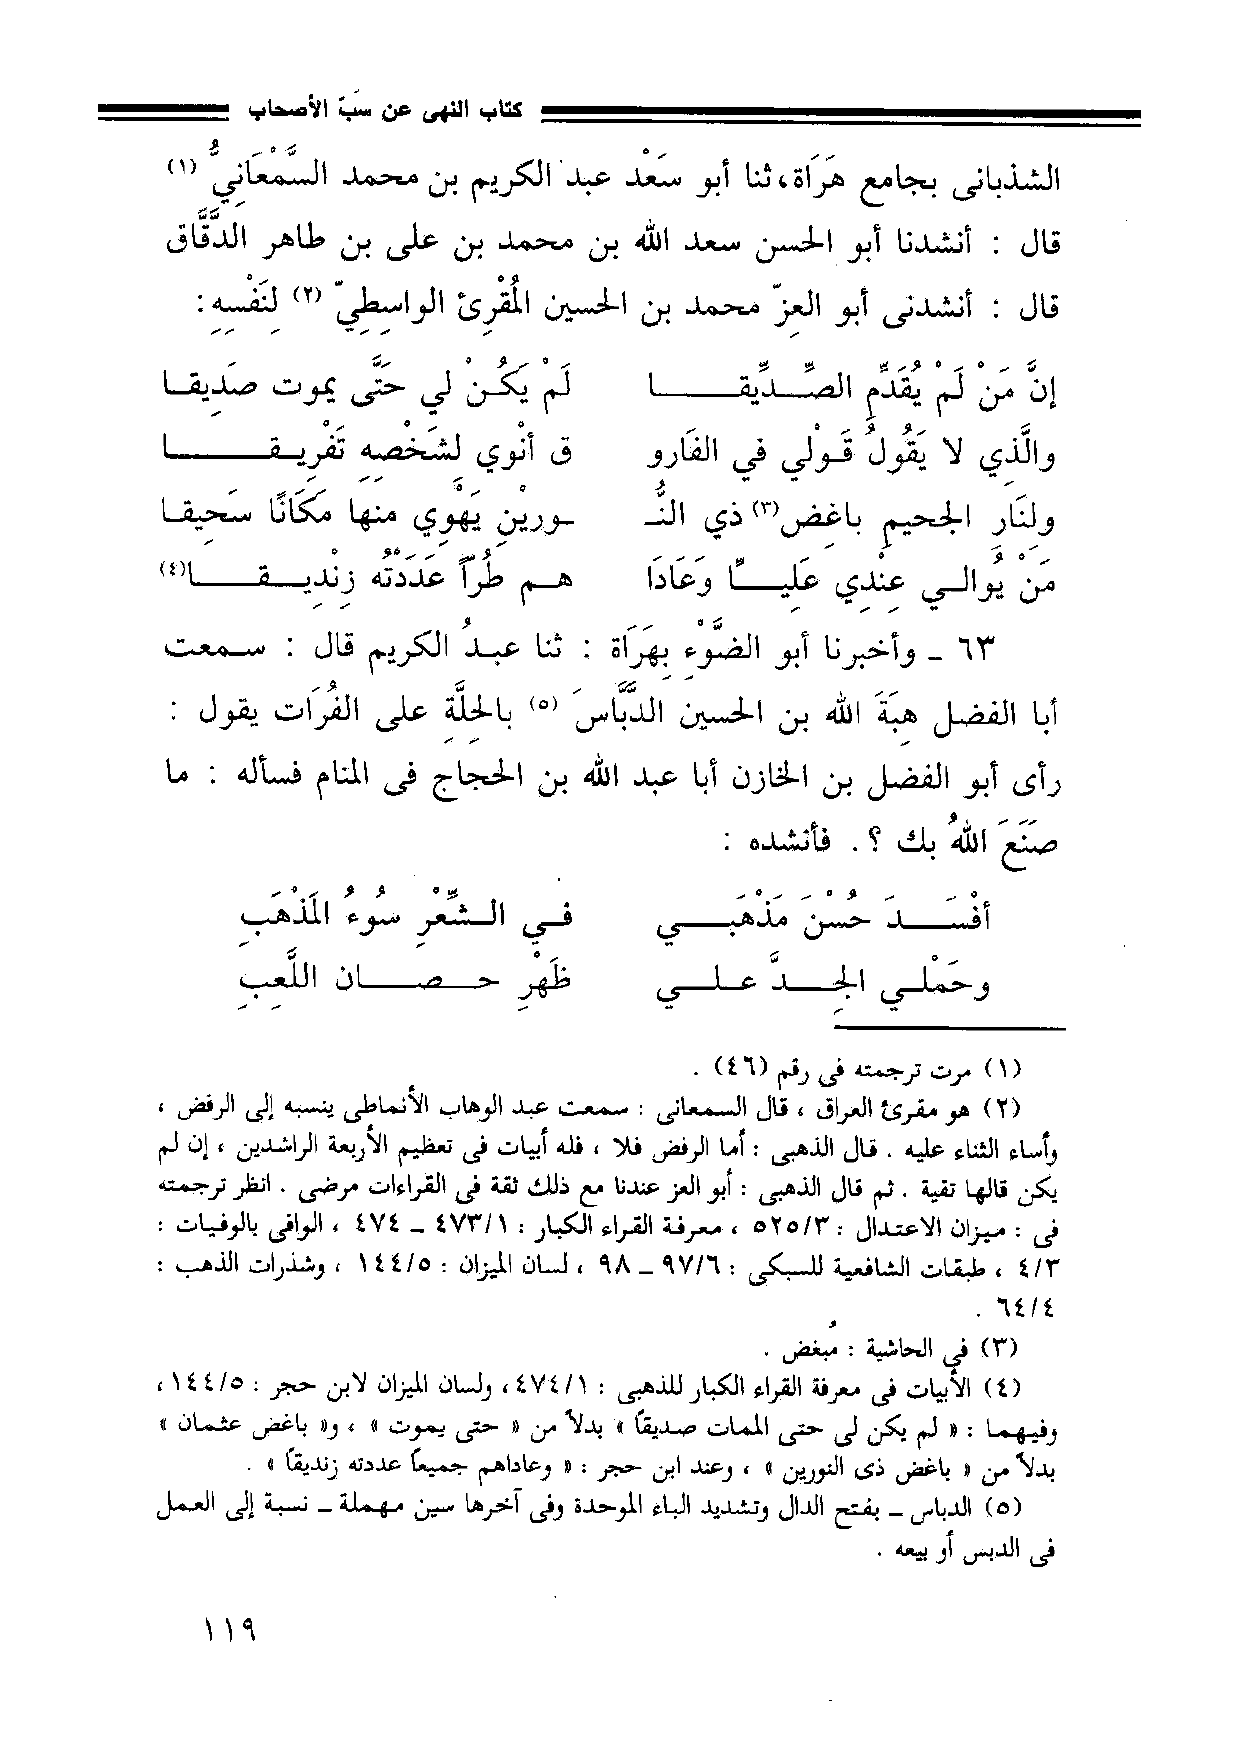 كتاب النهى عن سَبّ الأصحاب
الشذبانى بجامع هَرَاة، ثنا أبو سَعْد عبد الكريم بن محمد السَّمْعَانيُّ (١)
قال : أنشدنا أبو الحسن سعد الله بن محمد بن على بن طاهر الدَّقَّاق
قال : أنشدنى أبو العزّ محمد بن الحسين المُقْرِئ الواسطِيّ (٢) لنَفْسِه :
إنَّ مَنْ لَمْ يُقَدِّمِ الصِّـدِّيقَـا لَمْ يَكُـنْ لي حَتَّى يموت صَدِيقـا
والَّذي لا يَقُولُ قَـوْلي في الفَارو ق أنْوي لشَخْصِه تَفْرِيـقـا
ولنَار الجحيم باغض(٣) ذي النُّـ ـورين يَهْوي منها مكَانًا سَحيقـا
مَنْ يُوالـي عنْدي عَلِيـًّا وَعَادَا هـم طُرّاً عَدَدْتُه زنْديـقـا(٤)
٦٣ – وأخبرنا أبو الضَّوْء بِهَرَاة : ثنا عبـدُ الكريم قال : سـمعت
أبا الفضل هبَةَ الله بن الحسين الدَّبَّاسَ (٥) بالحِلَّة على الفُرَات يقول :
رأى أبو الفضل بن الخازن أبا عبد الله بن الحجاج فى المنام فسأله : ما
صَنَعَ اللهُ بك ؟ . فأنشده :
أفْسَـدَ حُسْنَ مَذْهَبِـي فـي الـشِّعْرِ سُوءُ المَذْهَبِ
وحَمْلـي الجِـدَّ علـي ظَهْرِ حـصـان اللَّعِبِ
(١) مرت ترجمته فى رقم (٤٦) .
(٢) هو مقرئ العراق ، قال السمعانى : سمعت عبد الوهاب الأنماطى ينسبه إلى الرفض ،
وأساء الثناء عليه . قال الذهبى : أما الرفض فلا ، فله أبيات فى تعظيم الأربعة الراشدين ، إن لم
يكن قالها تقية . ثم قال الذهبى : أبو العز عندنا مع ذلك ثقة فى القراءات مرضى . انظر ترجمته
فى : ميزان الاعتدال : ٥٢٥/٣ ، معرفة القراء الكبار : ٤٧٣/١ – ٤٧٤ ، الوافى بالوفيات :
٤/٣ ، طبقات الشافعية للسبكى : ٩٧/٦ – ٩٨ ، لسان الميزان : ١٤٤/٥ ، وشذرات الذهب :
٦٤/٤ .
(٣) فى الحاشية : مُبغض .
(٤) الأبيات فى معرفة القراء الكبار للذهبى : ٤٧٤/١ ، ولسان الميزان لابن حجر : ١٤٤/٥ ،
وفيهما : « لم يكن لى حتى الممات صديقاً » بدلاً من « حتى يموت » ، و« باغض عثمان »
بدلاً من « باغض ذى النورين » ، وعند ابن حجر : « وعاداهم جميعاً عددته زنديقاً » .
(٥) الدباس – بفتح الدال وتشديد الباء الموحدة وفى آخرها سين مهملة – نسبة إلى العمل
فى الدبس أو بيعه .
١١٩